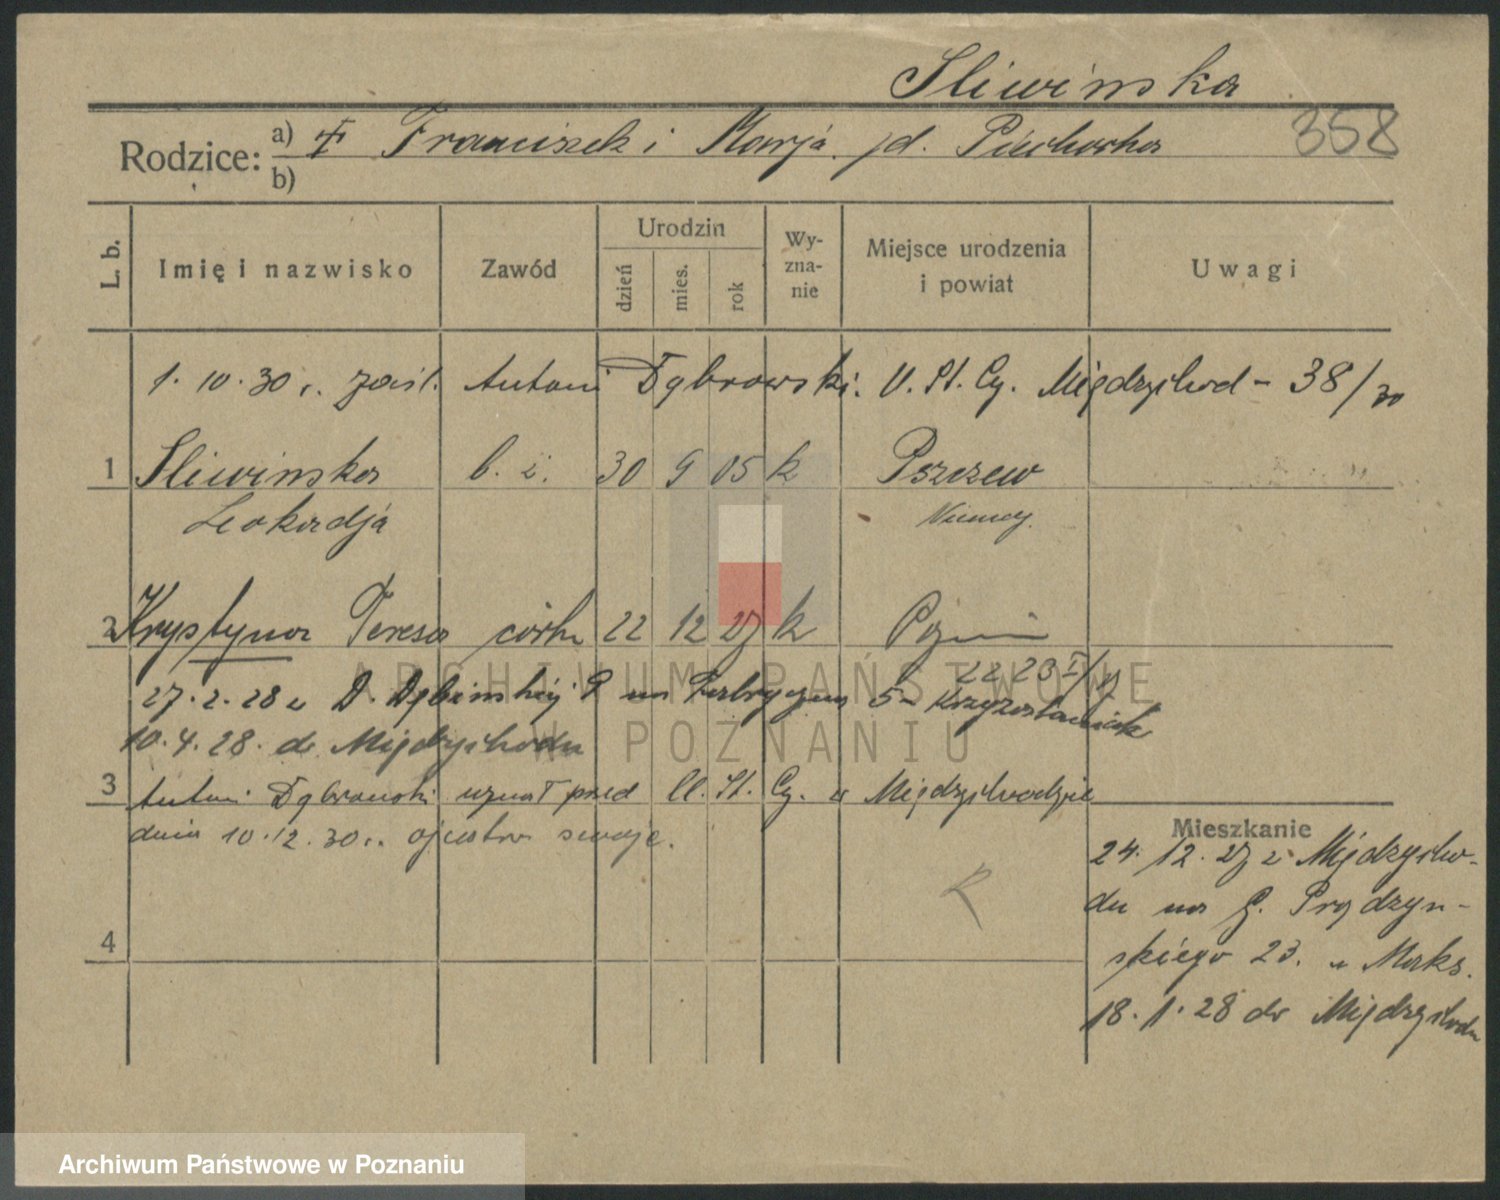 Sliwinska
Rodzice: a) Franciszek i Marja
358
b)
L. b.
Imię i nazwisko
Zawód
Urodzin
dzień
mies.
rok
Wy-
zna-
nie
Miejsce urodzenia
i powiat
Uwagi
1. 10. 30 r. Antoni Dąbrowski. U. St. Cy. Międzychod - 38/30
1 Sliwinska b. z. 30 9 05 k Pszczew
Leokadja Niemcy
2 Krystyna Teresa córka 22 12 27 k
22 23
27. 2. 28 5
10. 4. 28. do Międzychodu
3 Antoni Dąbrowski uznał przed U. St. Cy. w Międzychodzie
dnia 10. 12. 30 r. ojcostwo swoje.
4
Mieszkanie
24. 12. 27 z Międzycho-
du na G. Prądzyn-
skiego 23. u Maks.
18. 1. 28 do Międzychodu
R
ARCHIWUM PAŃSTWOWE
W POZNANIU
Archiwum Państwowe w Poznaniu